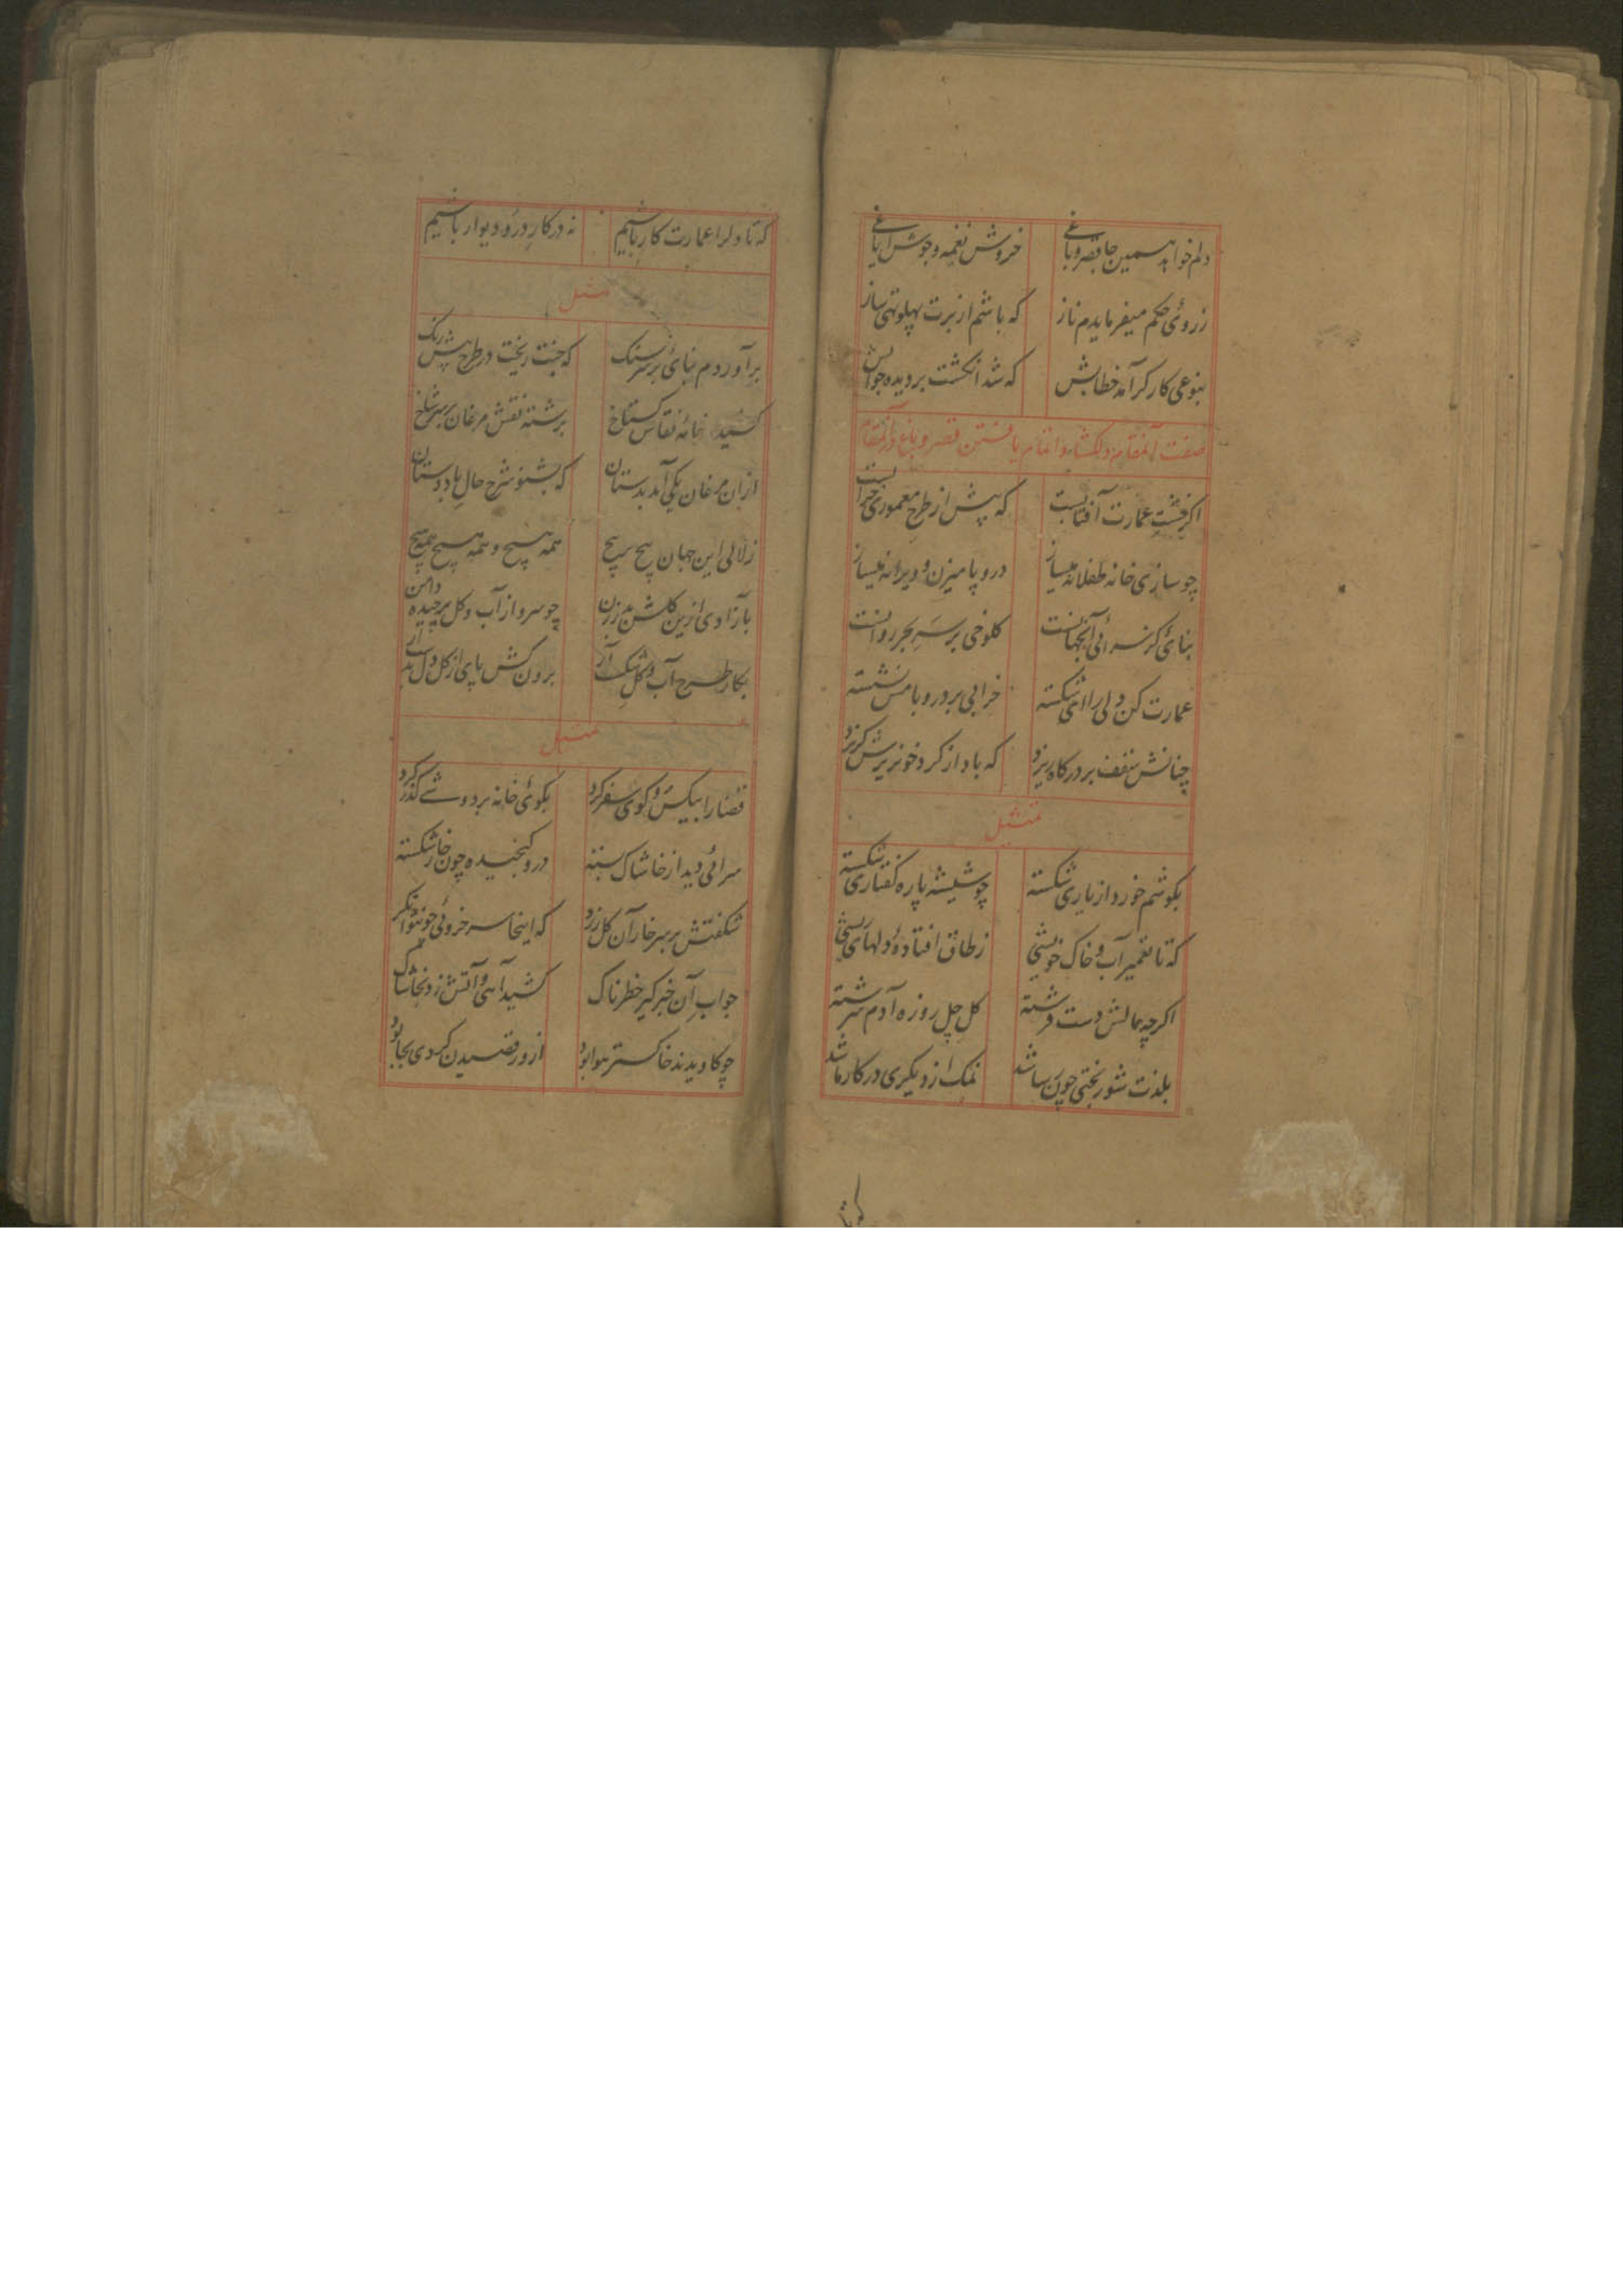 دلم خواهد همین جا قصر و باغی خروش نغمه و جوش ایاغی
ز روئی حکم میفرمایدم ناز که باشم از برت پهلو تهی ساز
بنوعی کارگر آمد خطابش که شد انگشت بر دیده جوابش
صفت آنمقام دلکشا و اتمام یافتن قصر و باغ در آنمقام
اگر خشت عمارت آفتابست که پیش از طرح معموری خرابست
چو سازی خانه طفلانه میساز درو پا میزن و ویرانه میساز
بنائی کز سرائی آنجهانست کلوخی بر سر بحر روانست
عمارت کن دلی را ای شکسته خرابی بر در و بامش نشسته
چنانش سقف بر درگاه ریزد که باد از گرد خونریزش گریزد
تمثیل
بگوشم خورد از یاری شکسته چو شیشه پاره گفتاری شکسته
که تا تعمیر آب و خاک خویشی ز طاق افتادهٔ دلهای ریشی
اگرچه بمالش دست فرشته گل چل روزه آدم سرشته
بلذت شوربختی چون رسا شد نمک از دیگری در کار ما شد
که تا دلرا عمارت کار باشیم نه در کار در و دیوار باشیم
تمثیل
برآوردم بنائی بر سر سنگ که جنت ریخت در طرح پیش رنگ
کشید خانهٔ نقاش گستاخ برشته نقش مرغان بر سر شاخ
ازان مرغان یکی آمد بدستان که بشنو شرح حال باد دوستان
زلالی این جهان پیچ بر پیچ همه هیچ و همه هیچ و همه هیچ
بآزادی ازین گلشن بدر زن چو سرو از آب و گل برچیده دامن
بکار طرح آب و گل شکست آر برون کش پای از گل دل بدست آر
تمثیل
قضا را بیکس و کوی سفر کرد بکوئی خانه بردوشی گذر کرد
سرائی دید از خاشاک بسته درو گنجیده چون خار شکسته
شگفتش بر سر خار آن گل زرد که اینجا سرخروئی چون توان کرد
جواب آن خبرگیر خطرناک کشید آهی و آتش زد بخاشاک
چو کاویدند خاکستر هوا بود ازو رقصیدن گردی بجا بود